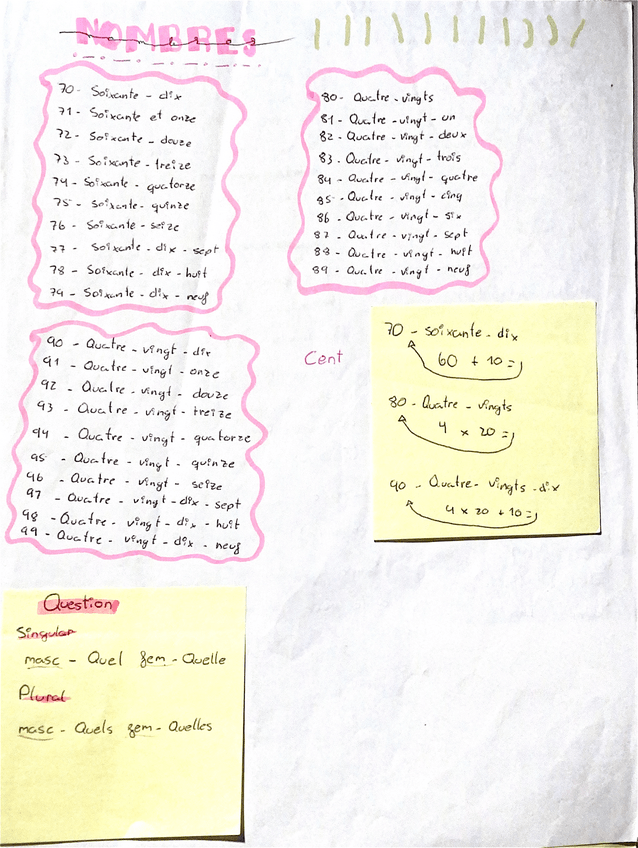 NOMBRES
nombres
70- Soixante - dix
71 - Soixante et onze
72 - Soixante - douze
73 - Soixante - treize
74 - Soixante - quatorze
75 - Soixante - quinze
76 - Soixante - seize
77 - Soixante - dix - sept
78 - Soixante - dix - huit
79 - Soixante - dix - neuf
80- Quatre - vingts
81 - Quatre - vingt - un
82 - Quatre - vingt - deux
83 - Quatre - vingt - trois
84 - Quatre - vingt - quatre
85 - Quatre - vingt - cinq
86 - Quatre - vingt - six
87 - Quatre - vingt - sept
88 - Quatre - vingt - huit
89 - Quatre - vingt - neuf
90 - Quatre - vingt - dix
91 - Quatre - vingt - onze
92 - Quatre - vingt - douze
93 - Quatre - vingt - treize
94 - Quatre - vingt - quatorze
95 - Quatre - vingt - quinze
96 - Quatre - vingt - seize
97 - Quatre - vingt - dix - sept
98 - Quatre - vingt - dix - huit
99 - Quatre - vingt - dix - neuf
Cent
70 - soixante - dix
60 + 10 =
80 - Quatre - vingts
4 x 20 =
90 - Quatre - vingts - dix
4 x 20 + 10 =
Question
Singular
masc - Quel fem - Quelle
Plural
masc - Quels fem - Quelles